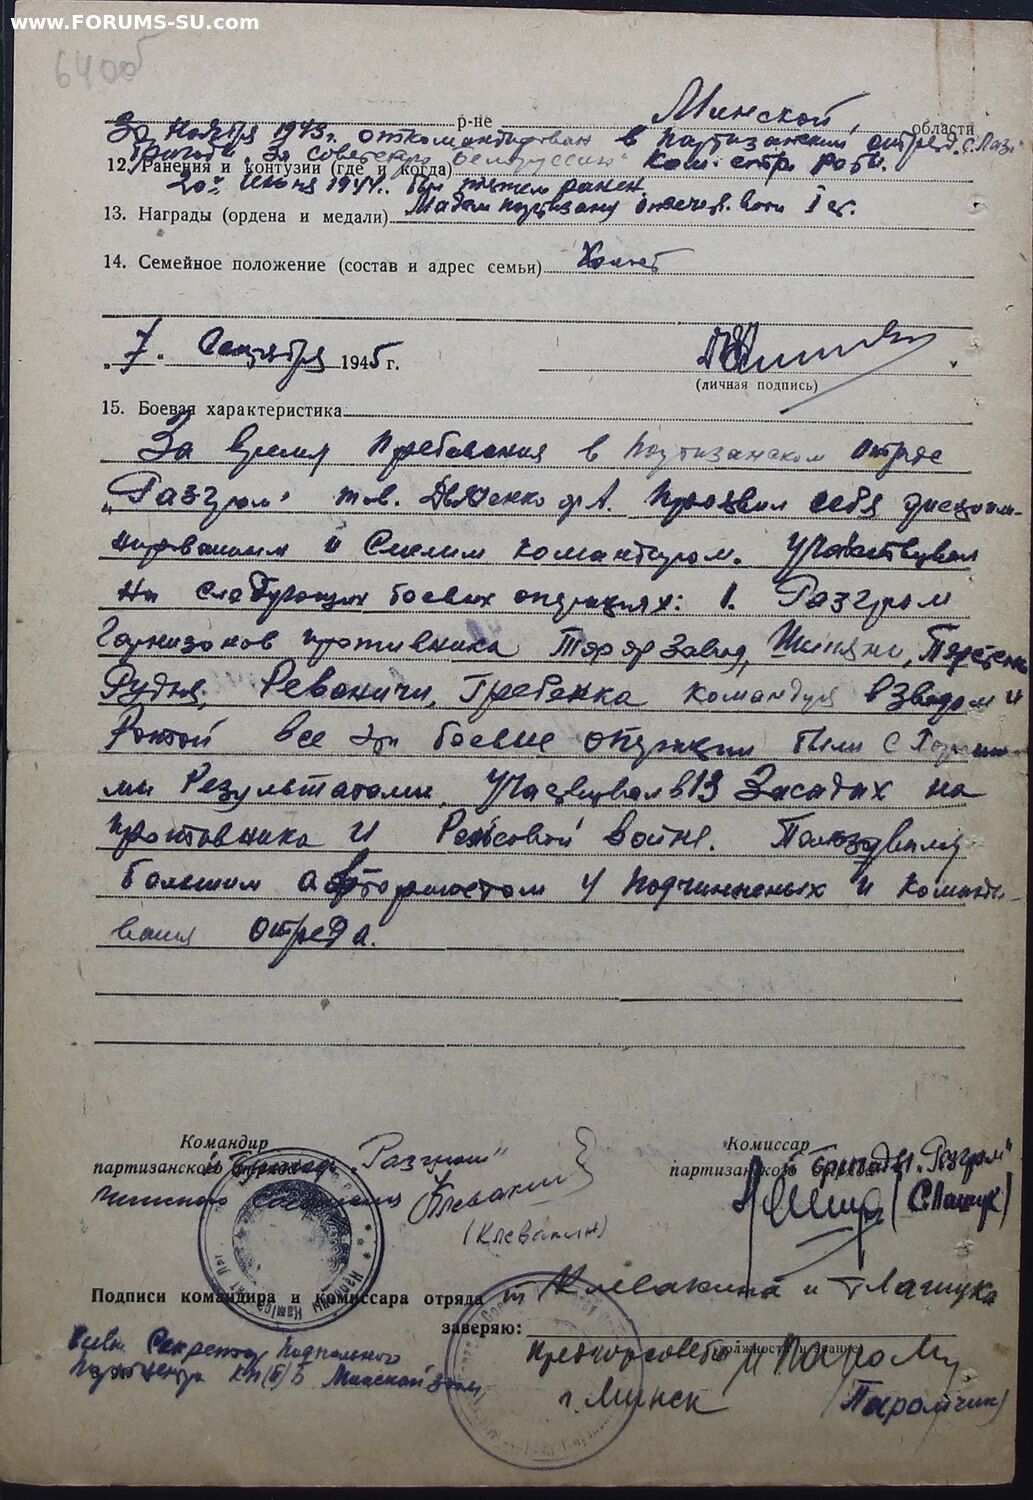 www.FORUMS-SU.com
6400б
р-не Минской области
30 ноября 1943 г. откомандирован в партизанский отряд
бригады "За советскую Белоруссию" Ком. стр. роты.
12. Ранения и контузии (где и когда)
20го июня 1944 г. был тяжел ранен.
13. Награды (ордена и медали) Медаль партизану отечеств. войн I ст.
14. Семейное положение (состав и адрес семьи) Холост
"7" Сентября 1945 г.
(личная подпись)
15. Боевая характеристика
За время пребывания в партизанском отряде
"Разгром" тов. проявил себя дисципли-
нированным и смелим командиром. Участвувал
на следующих боевих операциях: 1. Разгром
Гарнизонов противника завод,
Рудня, Реваничи, Гребенка командуя взводом и
Ротой все эти боевие операции были с
ми Результатами, Участвувал в 13 Засадах на
противника и Рельсовой войне. Пользувался
большим авторитетом у подчинненых и команди-
вания отряда.
Командир
партизанского бригады "Разгром"
(Клевакин)
Комиссар
партизанского бригады "Разгром"
(С. Лащук)
Подписи командира и комиссара отряда т Клевакина и т Лащука
заверяю:
Секретарь Подпольного
КП(б)Б Минской
предгорсовета
(должность и звание)
г. Минск
(Паромчик)